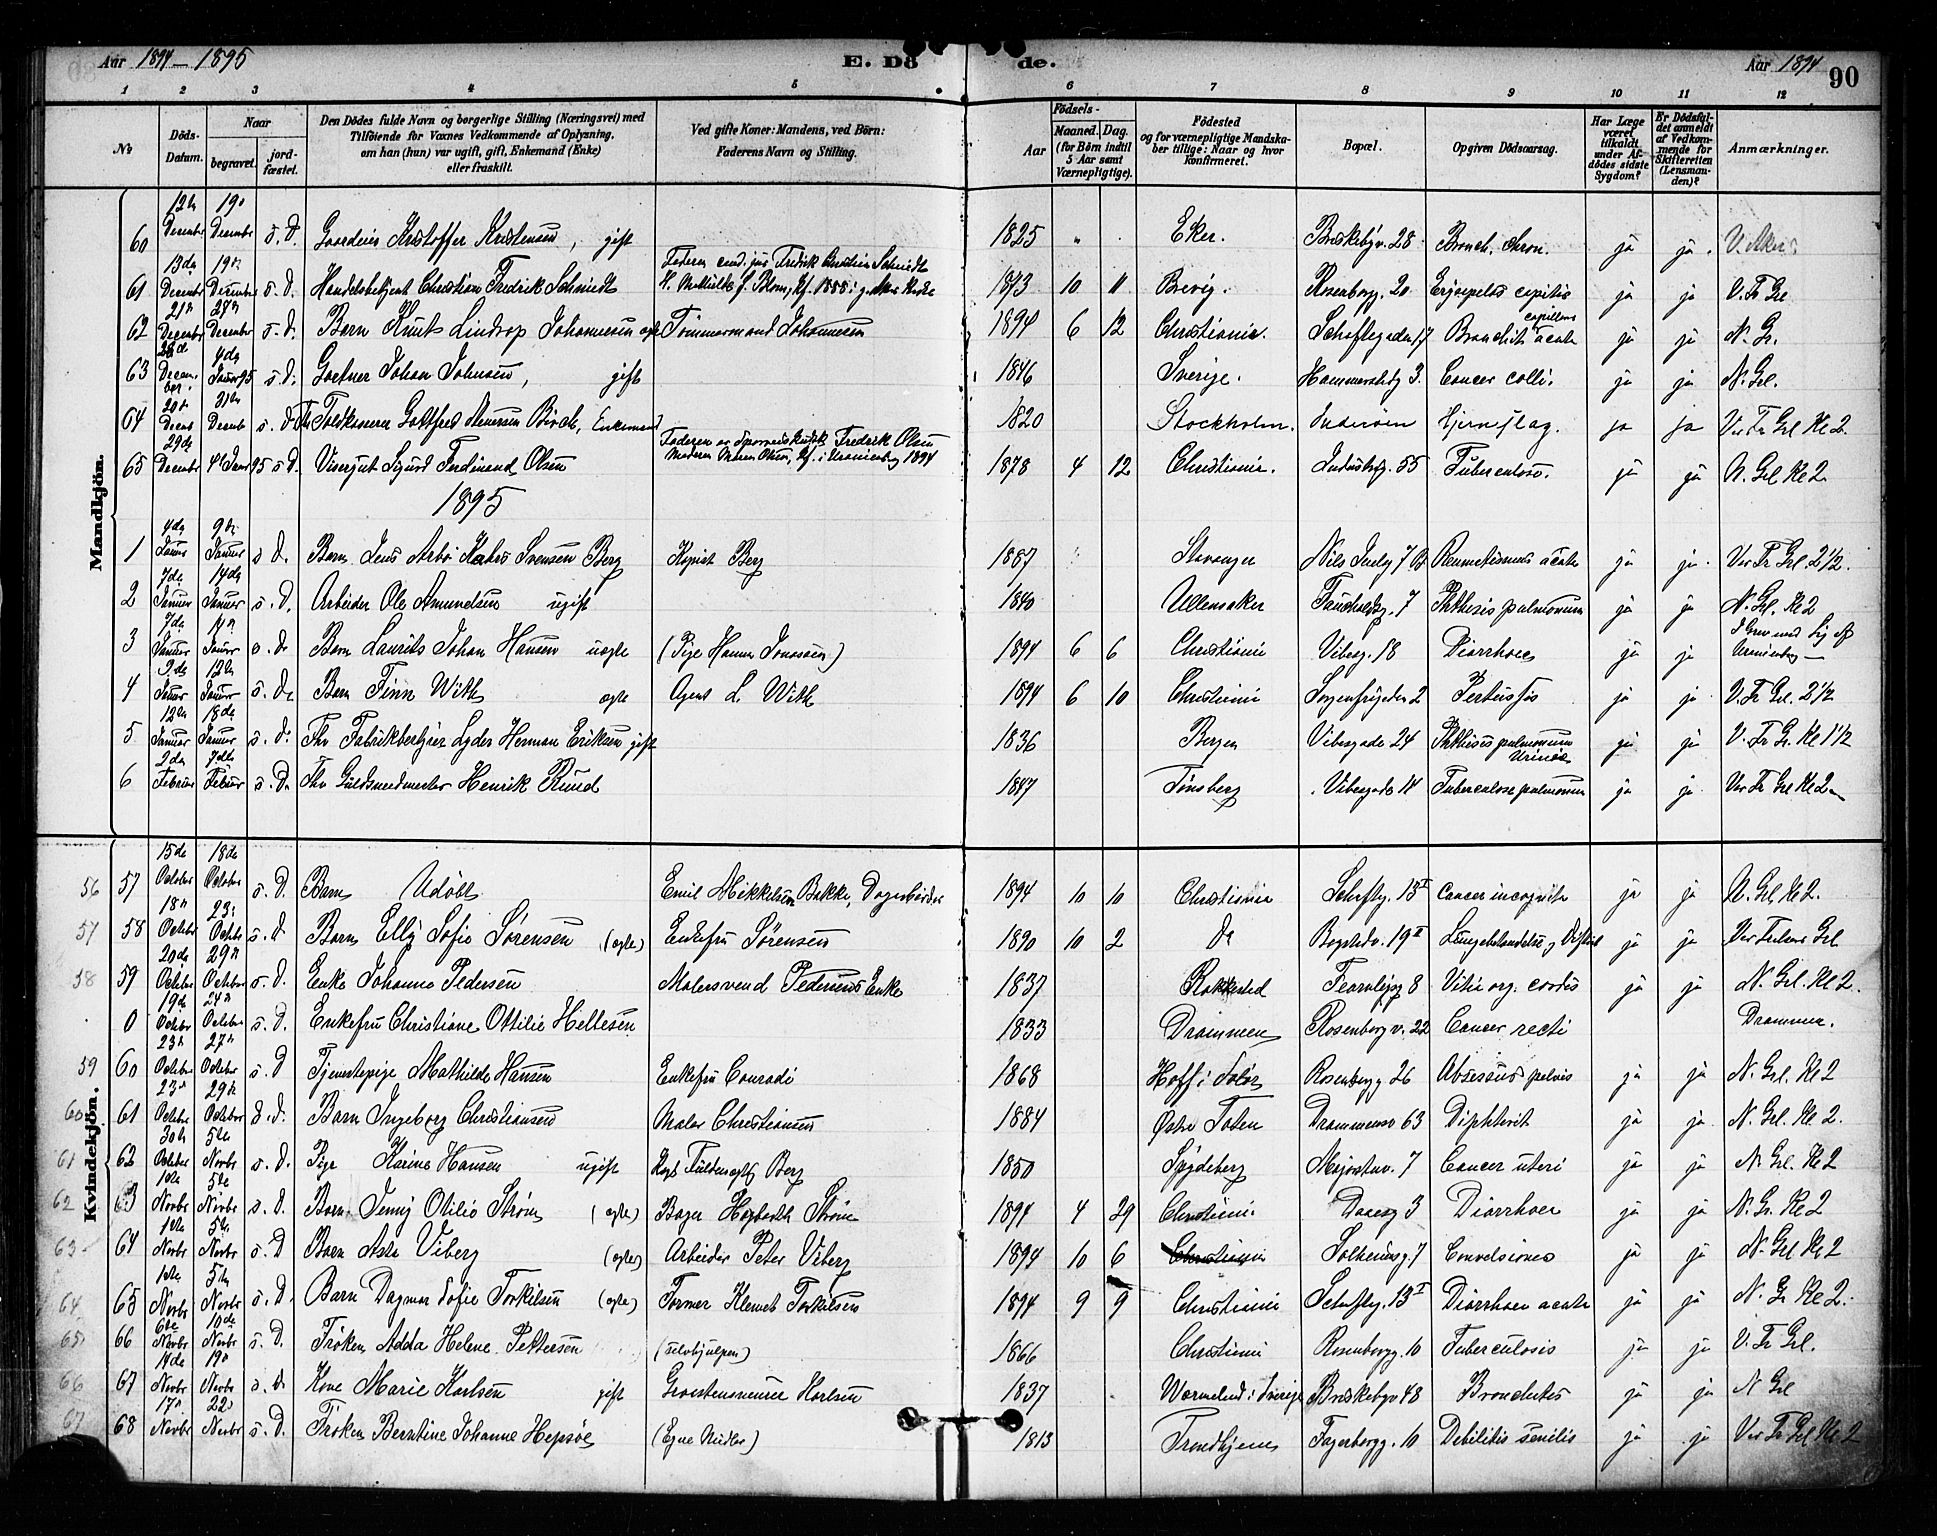 Aar 1894 – 1895 E. Dö de. Aar 1894 90
1 2 3 4 5 6 7 8 9 10 11 12
No Döds-Datum. Naar begravet. jord-fæstet. Den Dödes fulde Navn og borgerlige Stilling (Næringsvei) med Tilföiende for Voxnes Vedkommende af Oplysning, om han (hun) var ugift, gift, Enkemand (Enke) eller fraskilt. Ved gifte Koner: Mandens, ved Börn: Faderens Navn og Stilling. Aar Födsels- Maaned. Dag. (for Börn indtil 5 Aar samt Værnepligtige). Födested og for værnepligtige Mandska-ber tillige: Naar og hvor Konfirmeret. Bopæl. Opgiven Dödsaarsag. Har Læge været tilkaldt under Af-dödes sidste Sygdom? Er Dödsfal-det anmeldt af Vedkom-mende for Skifteretten (Lensman-den)? Anmærkninger.
Mandkjön.
60 12te Decembr 19de Decembr s. D. Gaardeier Kristoffer Kristensen, gift 1825 Eker. Briskebyv. 28 Bronch. chron. ja ja V. Aker
61 13de Decembr 19de Decembr s. D. Handelsbetjent Christian Fredrik Schmidt Faderen cand. jur. Fredrik Christian Schmidt 1873 10 11 Brevig. Rosenborgg. 20 Erysipelas capitis ja ja V. Fr Grl
62 21de Decembr 27de Decembr s. D. Barn Knut Lindrop Johannesen egte Tømmermand Johannesen 1894 6 12 Christiania. Schultzgaden 17 Bronchit capillær acuta ja ja N. Gr.
63 28de Decem-ber 4de Januar 95 s. D. Gartner Johan Johnsen, gift 1846 Sverige. Hammersbtg 3. Cancer colli. ja ja N. Grl.
64 20de Decbr 31te Decembr s. D. Toldkasserer Gottfred Birch, Enkemand 1820 Stockholm. Inderøen Hjerneslag. ja ja Vor Fr Grl Kl 2.
65 29de Decembr 4de Januar 95 s. D. Visergut Sigurd Ferdinand Olsen Faderen er Sporveiskusk Fredrik Olsen Moderen Maren Olsen, kf. i Uranienborg 1894 1878 4 12 Christiania. Industrig. 55 Tuberculose. ja ja N. Grl Kl 2
1895
1 4de Januar 9de Januar s D. Barn Jens Arbo Svensen Berg Kopist Berg 1887 Stavanger Nils Juelsg 7 B Reumatismus acuta ja ja Vor Fr Grl 2 1/2.
2 7de Januar 14de Januar s. D. Arbeider Ole Amundsen ugift 1840 Ullensaker 7 Phthisis pulmonum ja ja N. Grl. Kl 2
3 7de Januar Januar s. D. Barn Laurits Johan Hansen uegte (Pige Hanna Jonassen) 1894 6 6 Christiania Vibesg. 18 Diarrhoea ja ja I Grav med Lig af Uranienborg
4 9de Januar 12te Januar s. D. Barn Finn With egte Agent L. With 1894 6 10 Christiania Sorgenfrigaden 2 Pertussis ja ja V. Fr Grl. 2 1/2
5 12te Januar 18de Januar s. D. Fhv Fabrikbestyrer Lyder Herman Eriksen gift 1836 Bergen Vibesgade 24 Phthisis pulmonum ja ja V. Fr Gr. Kl 1 1/2
6 2de Februar 7de Februar s. D. Fhv Guldsmedmester Henrik Ruud 1847 Tønsberg Vibesgade 14 Tuberculose pulmonum ja ja Vor Fr Grl Kl 2
Kvindekjön.
56 57 15de October 18de October s. D. Barn Udøbt Emil Mikkelsen Bakke, Dagarbeider 1894 10 10 Christiania Schultzg. 13 I Cancer incognita ja ja N. Grl Kl 2.
57 58 18de Octobr 23de Octobr s. D Barn Elly Sofie Sørensen (egte) Enkefru Sørensen 1890 10 2 Do Bogstadv. 19 II Lungebetændelse ja ja Vor Frelsers Grl
58 59 20de October 29de October s. D. Enke Johanne Pedersen Malersvend Pedersens Enke 1837 Rakkestad Fearnleysg 8 Vitie org. cordis ja ja N. Grl. Kl 2.
0 19de Octobr 24de October s. D. Enkefru Christiane Ottilie Hellesen 1833 Drammen Rosenborgv. 22 Cancer recti Drammen.
59 60 23de October 27de October s. D Tjenstepige Mathilde Hansen Enkefru Conradi 1868 Hoff i Solør Rosenborgg 26 Abscessus pelvis ja ja N. Grl. Kl 2
60 61 23de October 29de October s. D. Barn Ingeborg Christiansen Maler Christiansen 1884 Østre Toten Drammensv 63 Diphtherit ja ja N. Grl. Kl 2.
61 62 30te October 5te Novbr s. D. Pige Karine Hansen ugift Berg 1850 Spydeberg Majorstuv. 7 Cancer uteri ja ja N. Grl. Kl 2
62 63 1ste Novbr 5te Novbr s. D. Barn Jenny Otilie Strøm (egte) Bager Hagbarth Strøm 1894 4 29 Christiania. Daasg 3 Diarrhoea ja ja N. Gr. Kl 2
63 64 1ste Novbr 5te Novbr s. D Barn Asta Viberg (egte) Arbeider Peter Viberg 1894 10 6 Christiania Solheimsg. 7 Convulsiones ja ja N. Grl Kl 2
64 65 1ste Novbr 5te Novbr s. D. Barn Dagmar Sofie Torkilsen (egte) Former Klemet Torkilsen 1894 9 9 Christiania Schultzg. 13 I Diarrhoea acuta ja ja N. Gr Kl 2.
65 66 6te Novbr 10de Novbr s. D. Frøken Adda Helene Pettersen (selvhjulpen) 1866 Christiania Rosenborgg. 10 Tuberculosis ja ja V. Fr Grl.
66 67 14de Novbr 19de Novbr s. D Kone Marie Karlsen gift Graastensmurer Karlsen 1837 Wærmeland i Sverige Briskebyv 48 Bronchites ja ja N Grl
67 68 17de Novbr 22de Novbr s. D. Frøken Berntine Johanne Hepsøe (Egne Midler) 1813 Trondhjem Fagerborgg. 10 Debilitis senilis ja ja Vor Fr Grl Kl 2